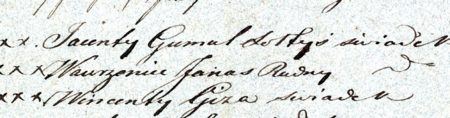 xx. Jacenty Gumul Sołtys świadek
xxx Wawrzeniec Janas Radny
xxx Wincenty Giza świadek